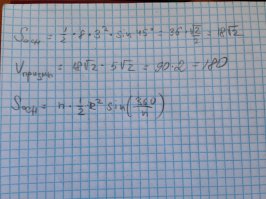 Sосн = 1/2 · 8 · 3² · sin 45° = 36 · √2/2 = 18√2
Vпризмы = 18√2 · 5√2 = 90 · 2 = 180
Sосн = n · 1/2 · R² sin(360/n)